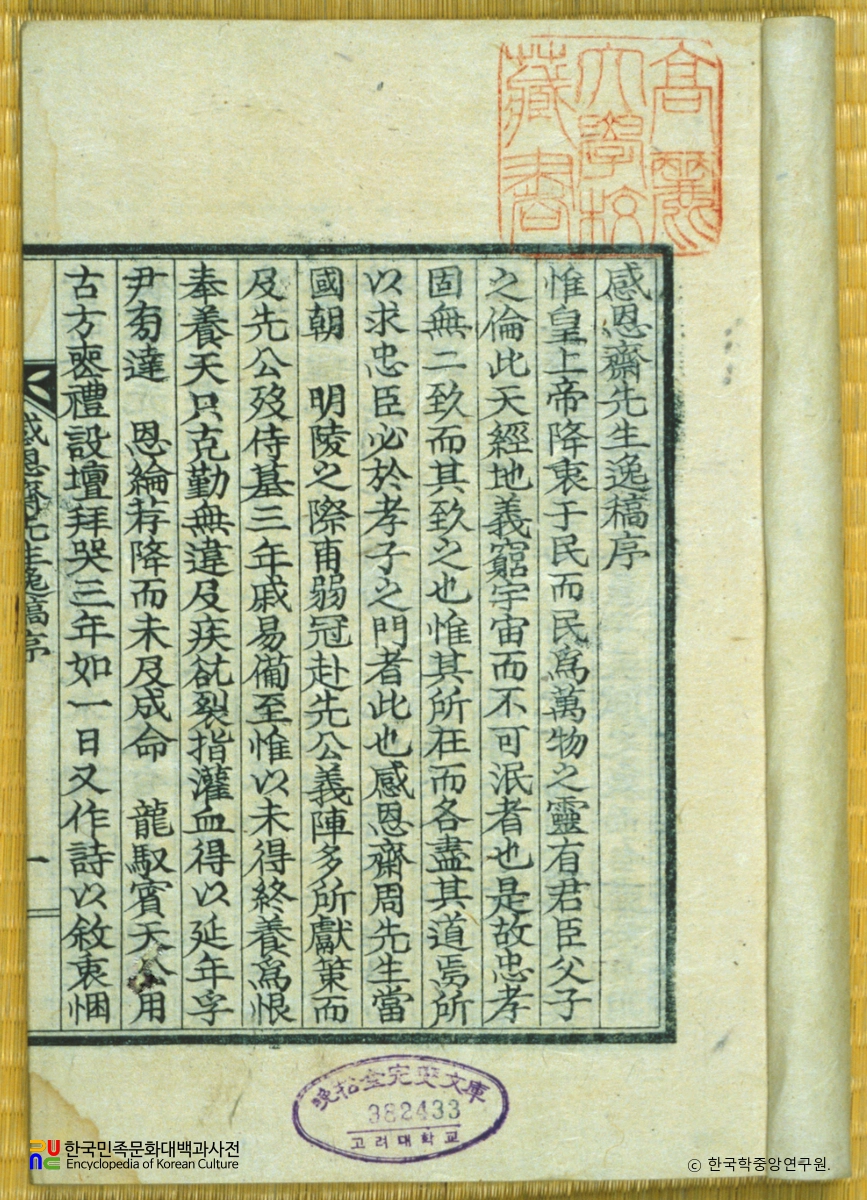 高麗
大學校
藏書
感恩齋先生逸稿序
惟皇上帝降衷于民而民爲萬物之靈有君臣父子
之倫此天經地義窮宇宙而不可泯者也是故忠孝
固無二致而其致之也惟其所在而各盡其道焉所
以求忠臣必於孝子之門者此也感恩齋周先生當
國朝 明陵之際甫弱冠赴先公義陣多所獻策而
及先公歿侍墓三年戚易備至惟以未得終養爲恨
奉養天只克勤無違及疾㞃裂指灌血得以延年孚
尹旁達 恩綸荐降而未及成命 龍馭賓天公用
古方喪禮設壇拜哭三年如一日又作詩以敘衷悃
感恩齋先生逸稿序
一
晩松金完燮文庫
382433
고려대학교
한국민족문화대백과사전
Encyclopedia of Korean Culture
© 한국학중앙연구원.